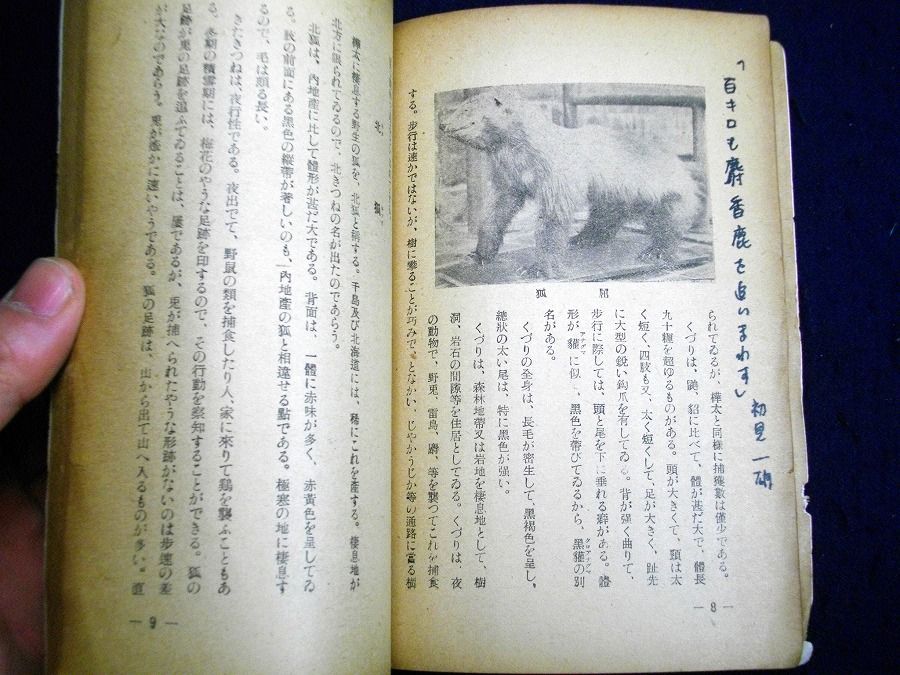 「百キロも麝香鹿を追いまわす」 初見一酔
られてゐるが、樺太と同樣に捕獲數は僅少である。
くづりは、鼬、貂に比べて、體が甚だ大で、體長
九十糎を超ゆるものがある。頭が大きくて、頸は太
く短く、四肢も又、太く短くして、足が大きく、趾先
に大型の鋭い鈎爪を有してゐる。背が强く曲りて、
步行に際しては、頭と尾を下に垂れる癖がある。體
形が貛に似し、黑色を帶びてゐるから、黑貛の別
名がある。
くづりの全身は、長毛が密生して、黑褐色を呈し、
總狀の太い尾は、特に黑色が强い。
くづりは、森林地帶又は岩地を棲息地として、樹
洞、岩石の間隙等を住居としてゐる。くづりは、夜
の動物で、野兎、雷鳥、麝、等を襲つてこれを捕食
する。步行は速かではないが、樹に攀ることが巧みで、となかい、じやかうじか等の通路に當る樹
屈狐
— 8 —
北狐
樺太に棲息する野生の狐を、北狐と稱する。千島及び北海道には、稀にこれを產する。棲息地が
北方に限られてゐるので、北きつねの名が出たのであらう。
北狐は、內地產に比して體形が甚だ大である。背面は、一體に赤味が多く、赤黃色を呈してゐ
る。肢の前面にある黑色の縱帶が著しいのも、內地產の狐と相違せる點である。極寒の地に棲息す
るので、毛は頗る長い。
きたきつねは、夜行性である。夜出でて、野鼠の類を捕食したり人、家に來りて鷄を襲ふこともあ
る。冬期の積雪期には、梅花のやうな足跡を印するので、その行動を察知することができる。狐の
足跡が兎の足跡を追ふてゐることは、屢であるが、兎が捕へられたやうな形跡がないのは步速の差
が大なのであらう。兎が遙かに速いやうである。狐の足跡は、山から出て山へ入るものが多い。直
— 9 —